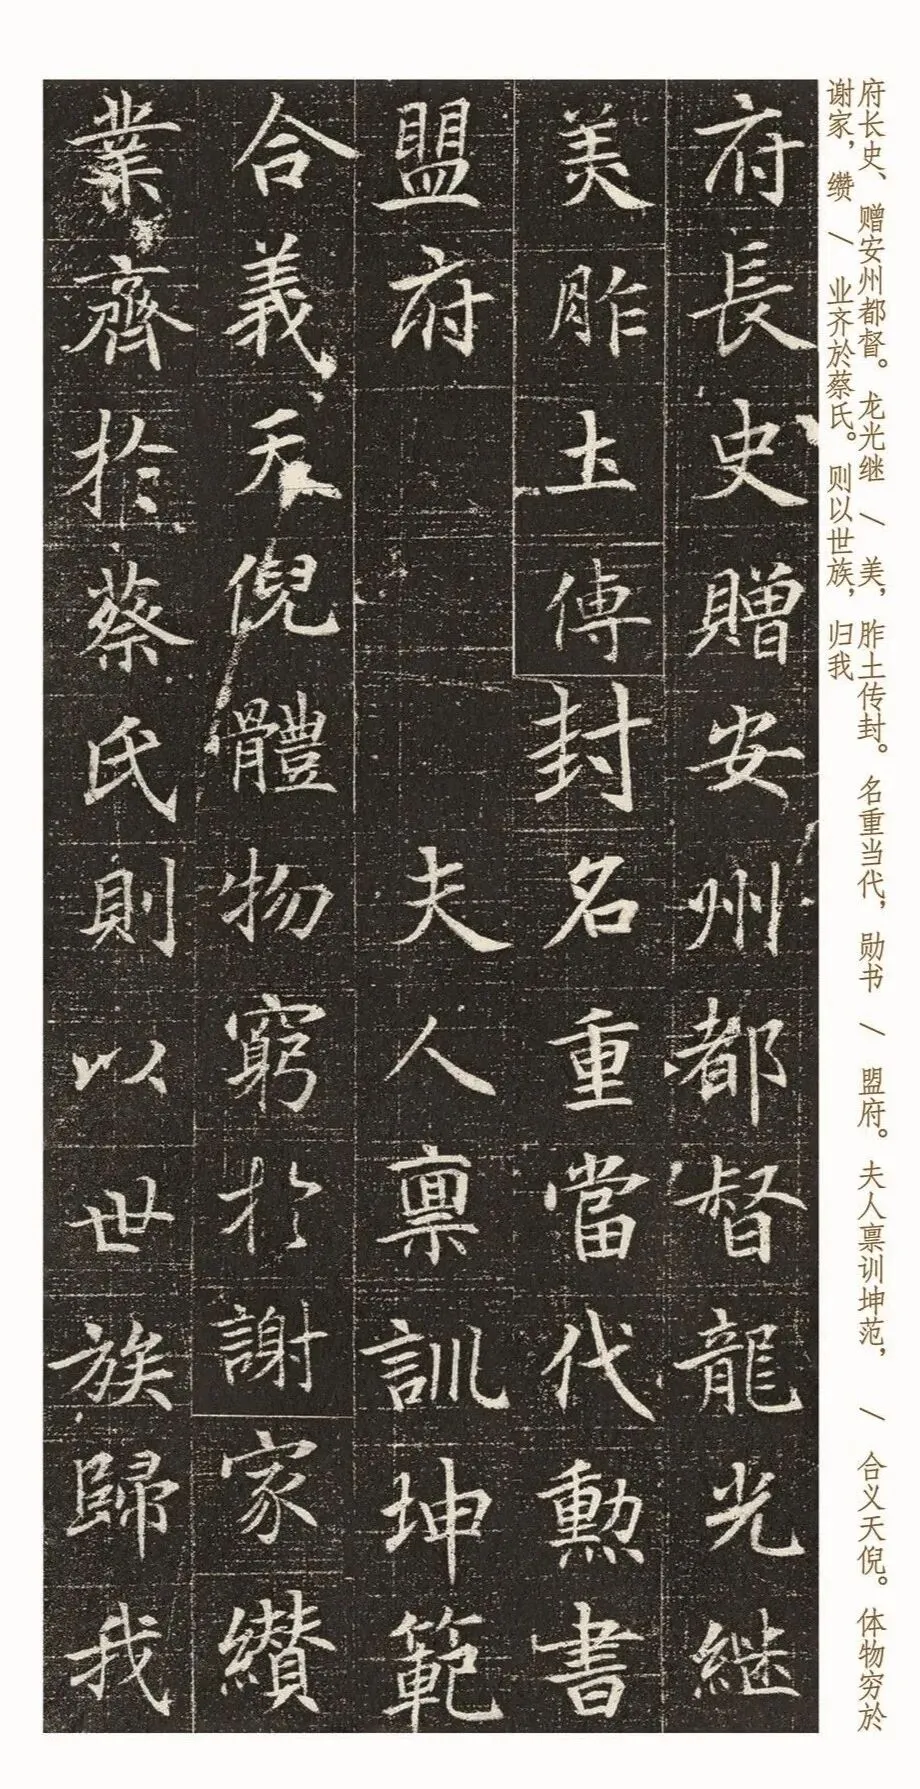 府长史、赠安州都督。龙光继 / 美，胙土传封。名重当代，勋书 / 盟府。夫人禀训坤范， / 合义天倪。体物穷於
谢家，缵 / 业齐於蔡氏。则以世族，归我
府長史贈安州都督龍光继
美胙土傳封名重當代勲書
盟府夫人稟訓坤範
合義天倪體物窮於謝家纘
業齊於蔡氏則以世族歸我